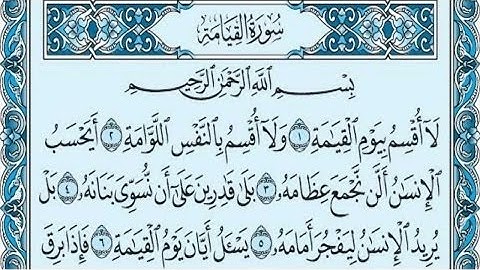 سُورَةُ القِيَامَةِ
بِسْمِ اللَّهِ الرَّحْمَٰنِ الرَّحِيمِ
لَا أُقْسِمُ بِيَوْمِ الْقِيَامَةِ ١ وَلَا أُقْسِمُ بِالنَّفْسِ اللَّوَّامَةِ ٢ أَيَحْسَبُ
الْإِنسَانُ أَلَّن نَّجْمَعَ عِظَامَهُ ٣ بَلَىٰ قَادِرِينَ عَلَىٰ أَن نُّسَوِّيَ بَنَانَهُ ٤ بَلْ
يُرِيدُ الْإِنسَانُ لِيَفْجُرَ أَمَامَهُ ٥ يَسْـَٔلُ أَيَّانَ يَوْمُ الْقِيَامَةِ ٦ فَإِذَا بَرِقَ